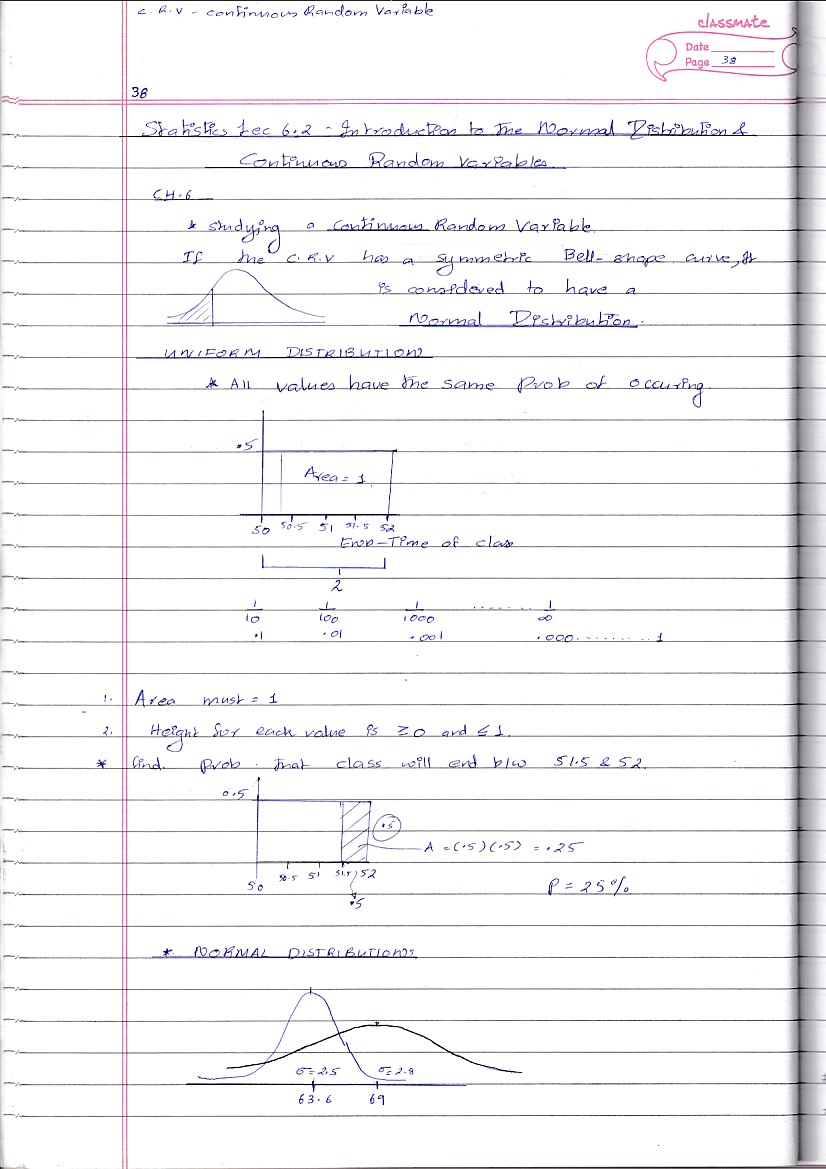 C.R.V - continuous Random Variable
classmate
Date
Page 38
38
Statistics Lec 6.2 - Introduction to the Normal Distribution &
Continuous Random Variables
CH.6
* studying a continuous Random Variable.
If the C.R.V has a symmetric Bell-shape curve, it
is considered to have a
Normal Distribution.
UNIFORM DISTRIBUTIONS
* All values have the same Prob of occuring.
.5
Area = 1
50 50.5 51 51.5 52
End-Time of class
2
1/10 1/100 1/1000 ........ 1/∞
.1 .01 .001 .000...........1
1. Area must = 1
2. Height for each value is ≥0 and ≤1.
* find. Prob. that class will end b/w 51.5 & 52.
0.5
.5
A = (.5)(.5) = .25
50 50.5 51 51.5 52
P = 25%
.5
* NORMAL DISTRIBUTIONS
σ=2.5 σ=2.8
63.6 69